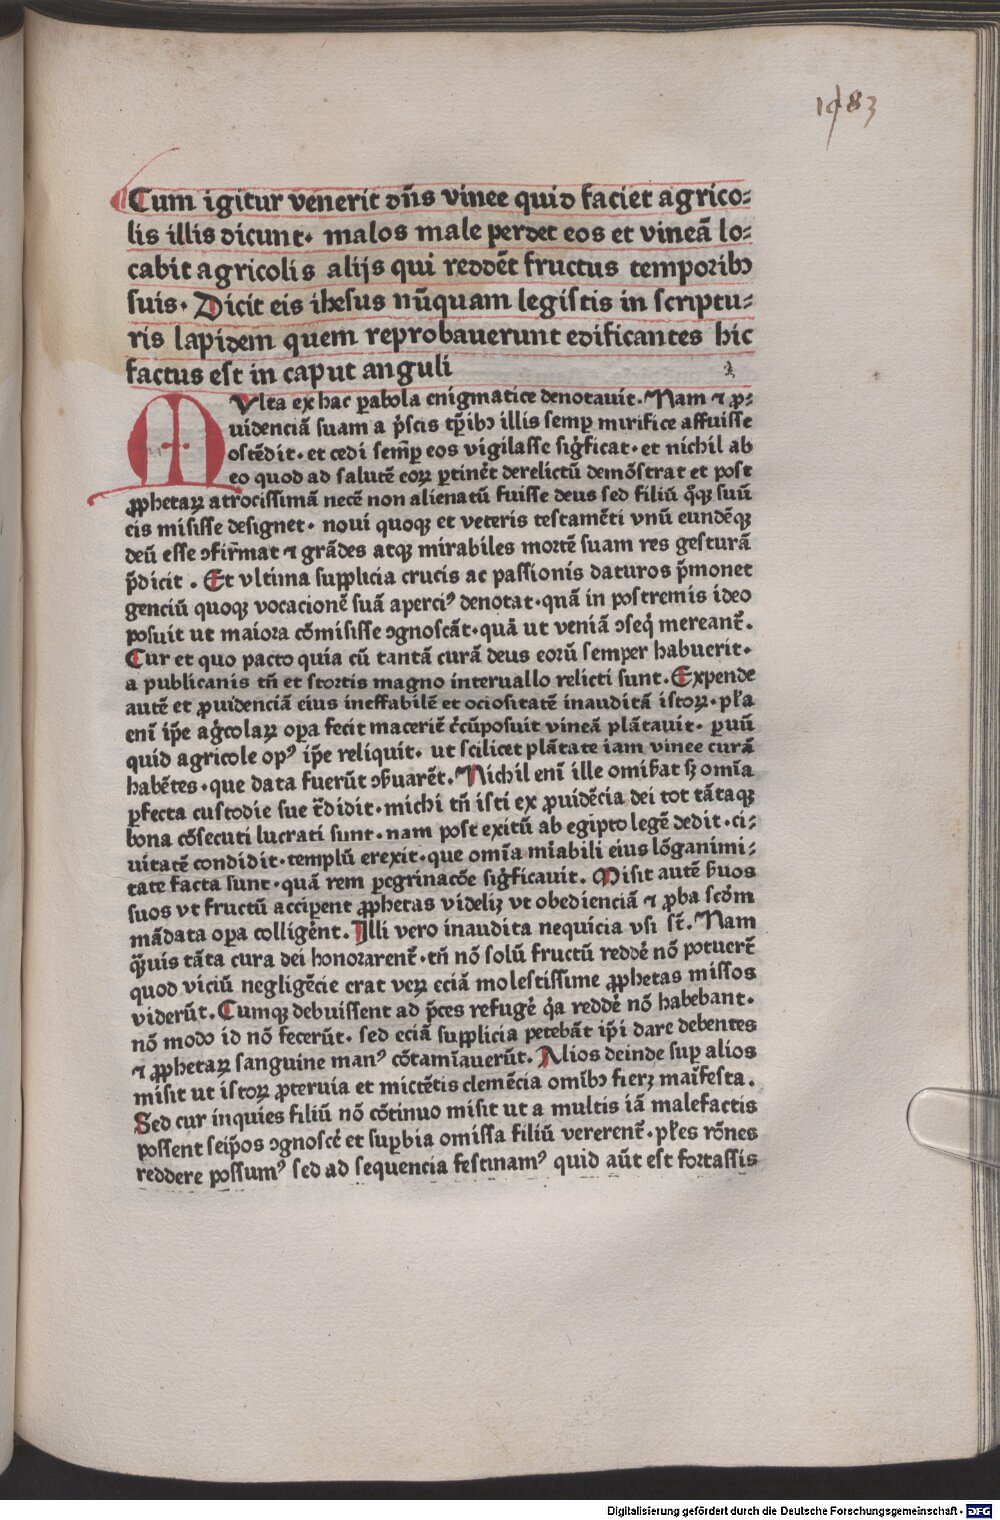 1483
Cum igitur venerit dn̄s vinee quid faciet agrico⸗
lis illis dicunt· malos male perdet eos et vineā lo⸗
cabit agricolis alijs qui reddēt fructus temporibꝫ
suis· Dicit eis ihesus nū̄quam legistis in scriptu⸗
ris lapidem quem reprobauerunt edificantes hic
factus est in caput anguli
MVlta ex hac ꝑabola enigmatice denotauit. Nam ⁊ ꝓ⸗
uidenciā suam a p̄scis tꝑibꝫ illis semꝑ mirifice affuisse
ostēdit· et cedi semꝑ eos vigilasse sigficat· et nichil ab
eo quod ad salutē eoꝝ ꝑtinēt derelictū demōstrat et post
ꝓphetaꝝ atrocissimā necē non alienatū fuisse deus sed filiū qꝫ suū
eis misisse designet· noui quoqꝫ et veteris testamēti vnū eundēqꝫ
deū esse ꝯfirmat ⁊ grādes atqꝫ mirabiles mortē suam res gesturā
p̄dicit . Et vltima supplicia crucis ac passionis daturos p̄monet
genciū quoqꝫ vocacionē suā aperciꝰ denotat· quā in postremis ideo
posuit ut maiora cōmisisse ꝯgnoscāt· quā ut veniā ꝯseq̄ mereant̄.
Cur et quo pacto quia cū tantā curā deus eorū semper habuerit·
a publicanis tn̄ et scortis magno interuallo relicti sunt· Expende
autē et ꝓuidenciā eius ineffabilē et ociositatē inauditā istoꝝ· pl̄a
enī ip̄e ag̓colaꝝ oꝑa fecit maceriē c̄cūposuit vineā plātauit· ꝑuū
quid agricole opꝰ ip̄e reliquit· ut scilicet plātate iam vinee curā
habētes· que data fuerūt ꝯs̄uarēt. Nichil enī ille omis̄at sꝫ omīa
ꝑfecta custodie sue t̄didit· michi tn̄ isti ex ꝓuidēcia dei tot tātaqꝫ
bona cōsecuti lucrati sunt· nam post exitū ab egipto legē dedit· ci⸗
uitatē condidit· templū erexit· que omīa mīabili eius lōganimi⸗
tate facta sunt· quā rem ꝑegrinacōe sigficauit. Misit autē s̄uos
suos vt fructū acciꝑent ꝓphetas videliꝫ vt obedienciā ⁊ ꝓba scdm̄
mādata oꝑa colligēnt. Illi vero inaudita nequicia vsi st̄. Nam
q̄uis tāta cura dei honorarent̄· tn̄ nō solū fructū reddē nō potuert̄
quod viciū negligēcie erat veꝝ eciā molestissime ꝓphetas missos
viderūt. Cumqꝫ debuissent ad p̄ces refugē qa reddē nō habebant·
nō modo id nō fecerūt· sed eciā supplicia petebāt ip̄i dare debentes
⁊ ꝓphetaꝝ sanguine manꝰ cōtamīauerūt. Alios deinde suꝑ alios
misit ut istoꝝ ꝓteruia et mictētis clemēcia omībꝫ fierꝫ maīfesta.
Sed cur inquies filiū nō cōtinuo misit ut a multis iā malefactis
possent seip̄os ꝯgnoscē et suꝑbia omissa filiū vererent̄· pl̄es rōnes
reddere possumꝰ sed ad sequencia festinamꝰ quid aūt est fortassis
Digitalisierung gefördert durch die Deutsche Forschungsgemeinschaft - DFG